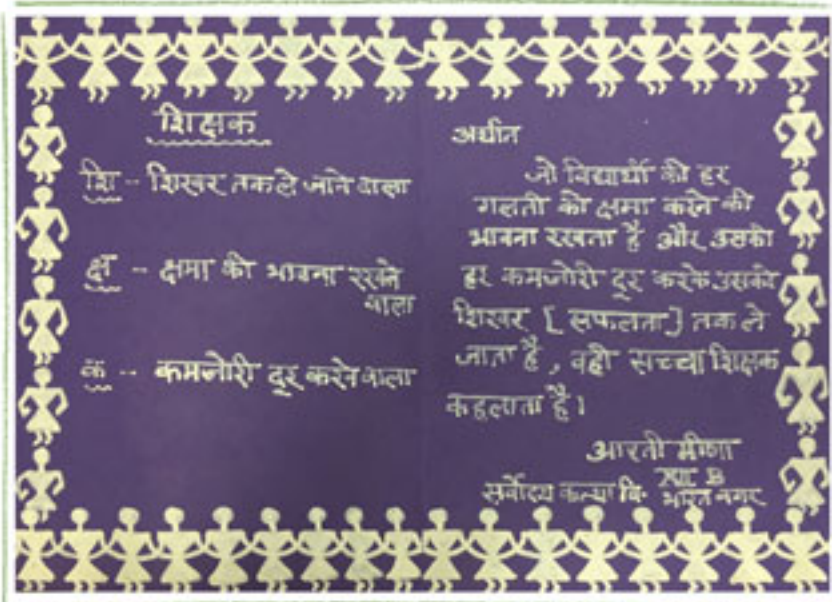 शिक्षक
शि - शिखर तक ले जाने वाला
क्ष - क्षमा की भावना रखने
वाला
क - कमजोरी दूर करने वाला
अर्थात
जो विद्यार्थी की हर
गलती को क्षमा करने की
भावना रखता है और उसकी
हर कमजोरी दूर करके उसको
शिखर [सफलता] तक ले
जाता है, वही सच्चा शिक्षक
कहलाता है।
आरती मीणा
XII B
सर्वोदय कन्या वि. भारत नगर